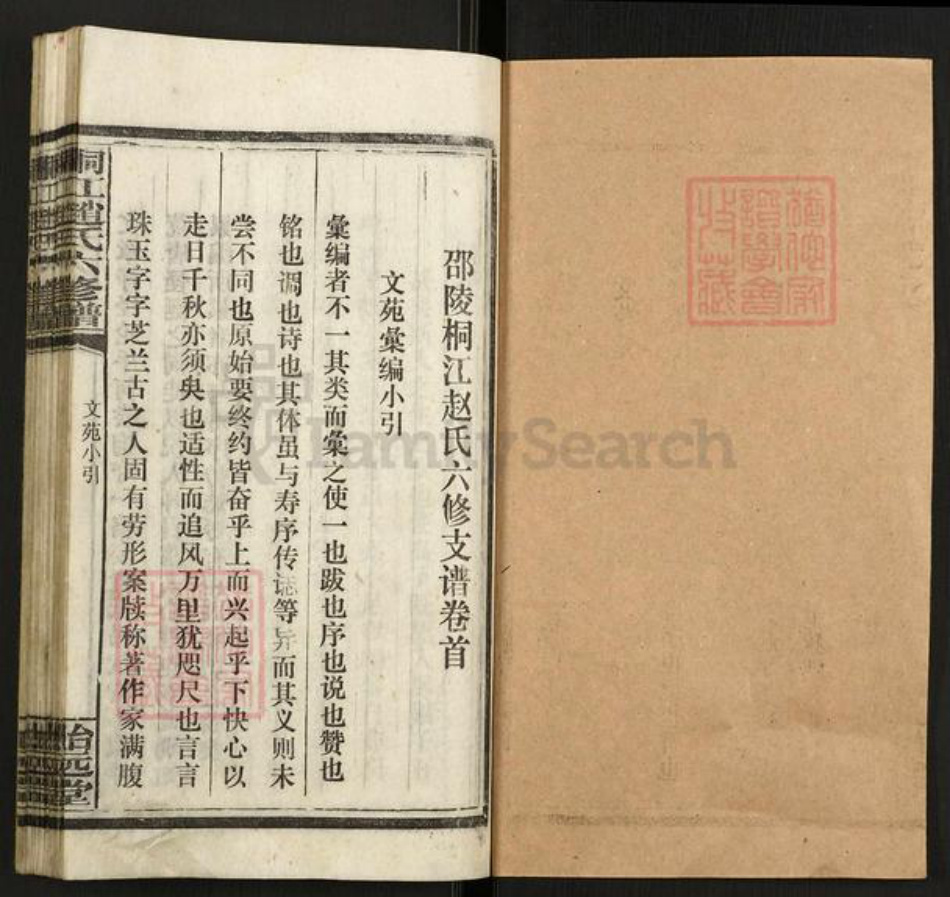 邵陵桐江赵氏六修支谱卷首
文苑彙编小引
彙编者不一其类而彙之使一也跋也序也说也赞也
铭也调也诗也其体虽与寿序传志等异而其义则未
尝不同也原始要终约皆奋乎上而兴起乎下快心以
走日千秋亦须臾也适性而追风万里犹咫尺也言言
珠玉字字芝兰古之人固有劳形案牍称著作家满腹
桐江趙氏六修譜
文苑小引
FamilySearch